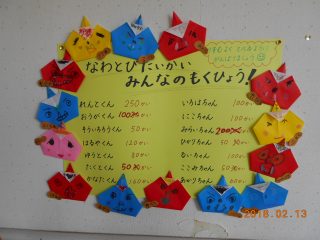 なわとびたいかい
みんなのもくひょう!
れんとくん 250かい
おうがくん 100かい
そういちろうくん 50かい
はるやくん 120かい
ゆうとくん 80かい
たくとくん 50かい
かなたくん 160かい
いろはちゃん 100かい
にこちゃん 100かい
みらいちゃん 200かい
ひかりちゃん 50かい
るいちゃん 100かい
ここみちゃん 50かい
あかりちゃん
2018.02.13